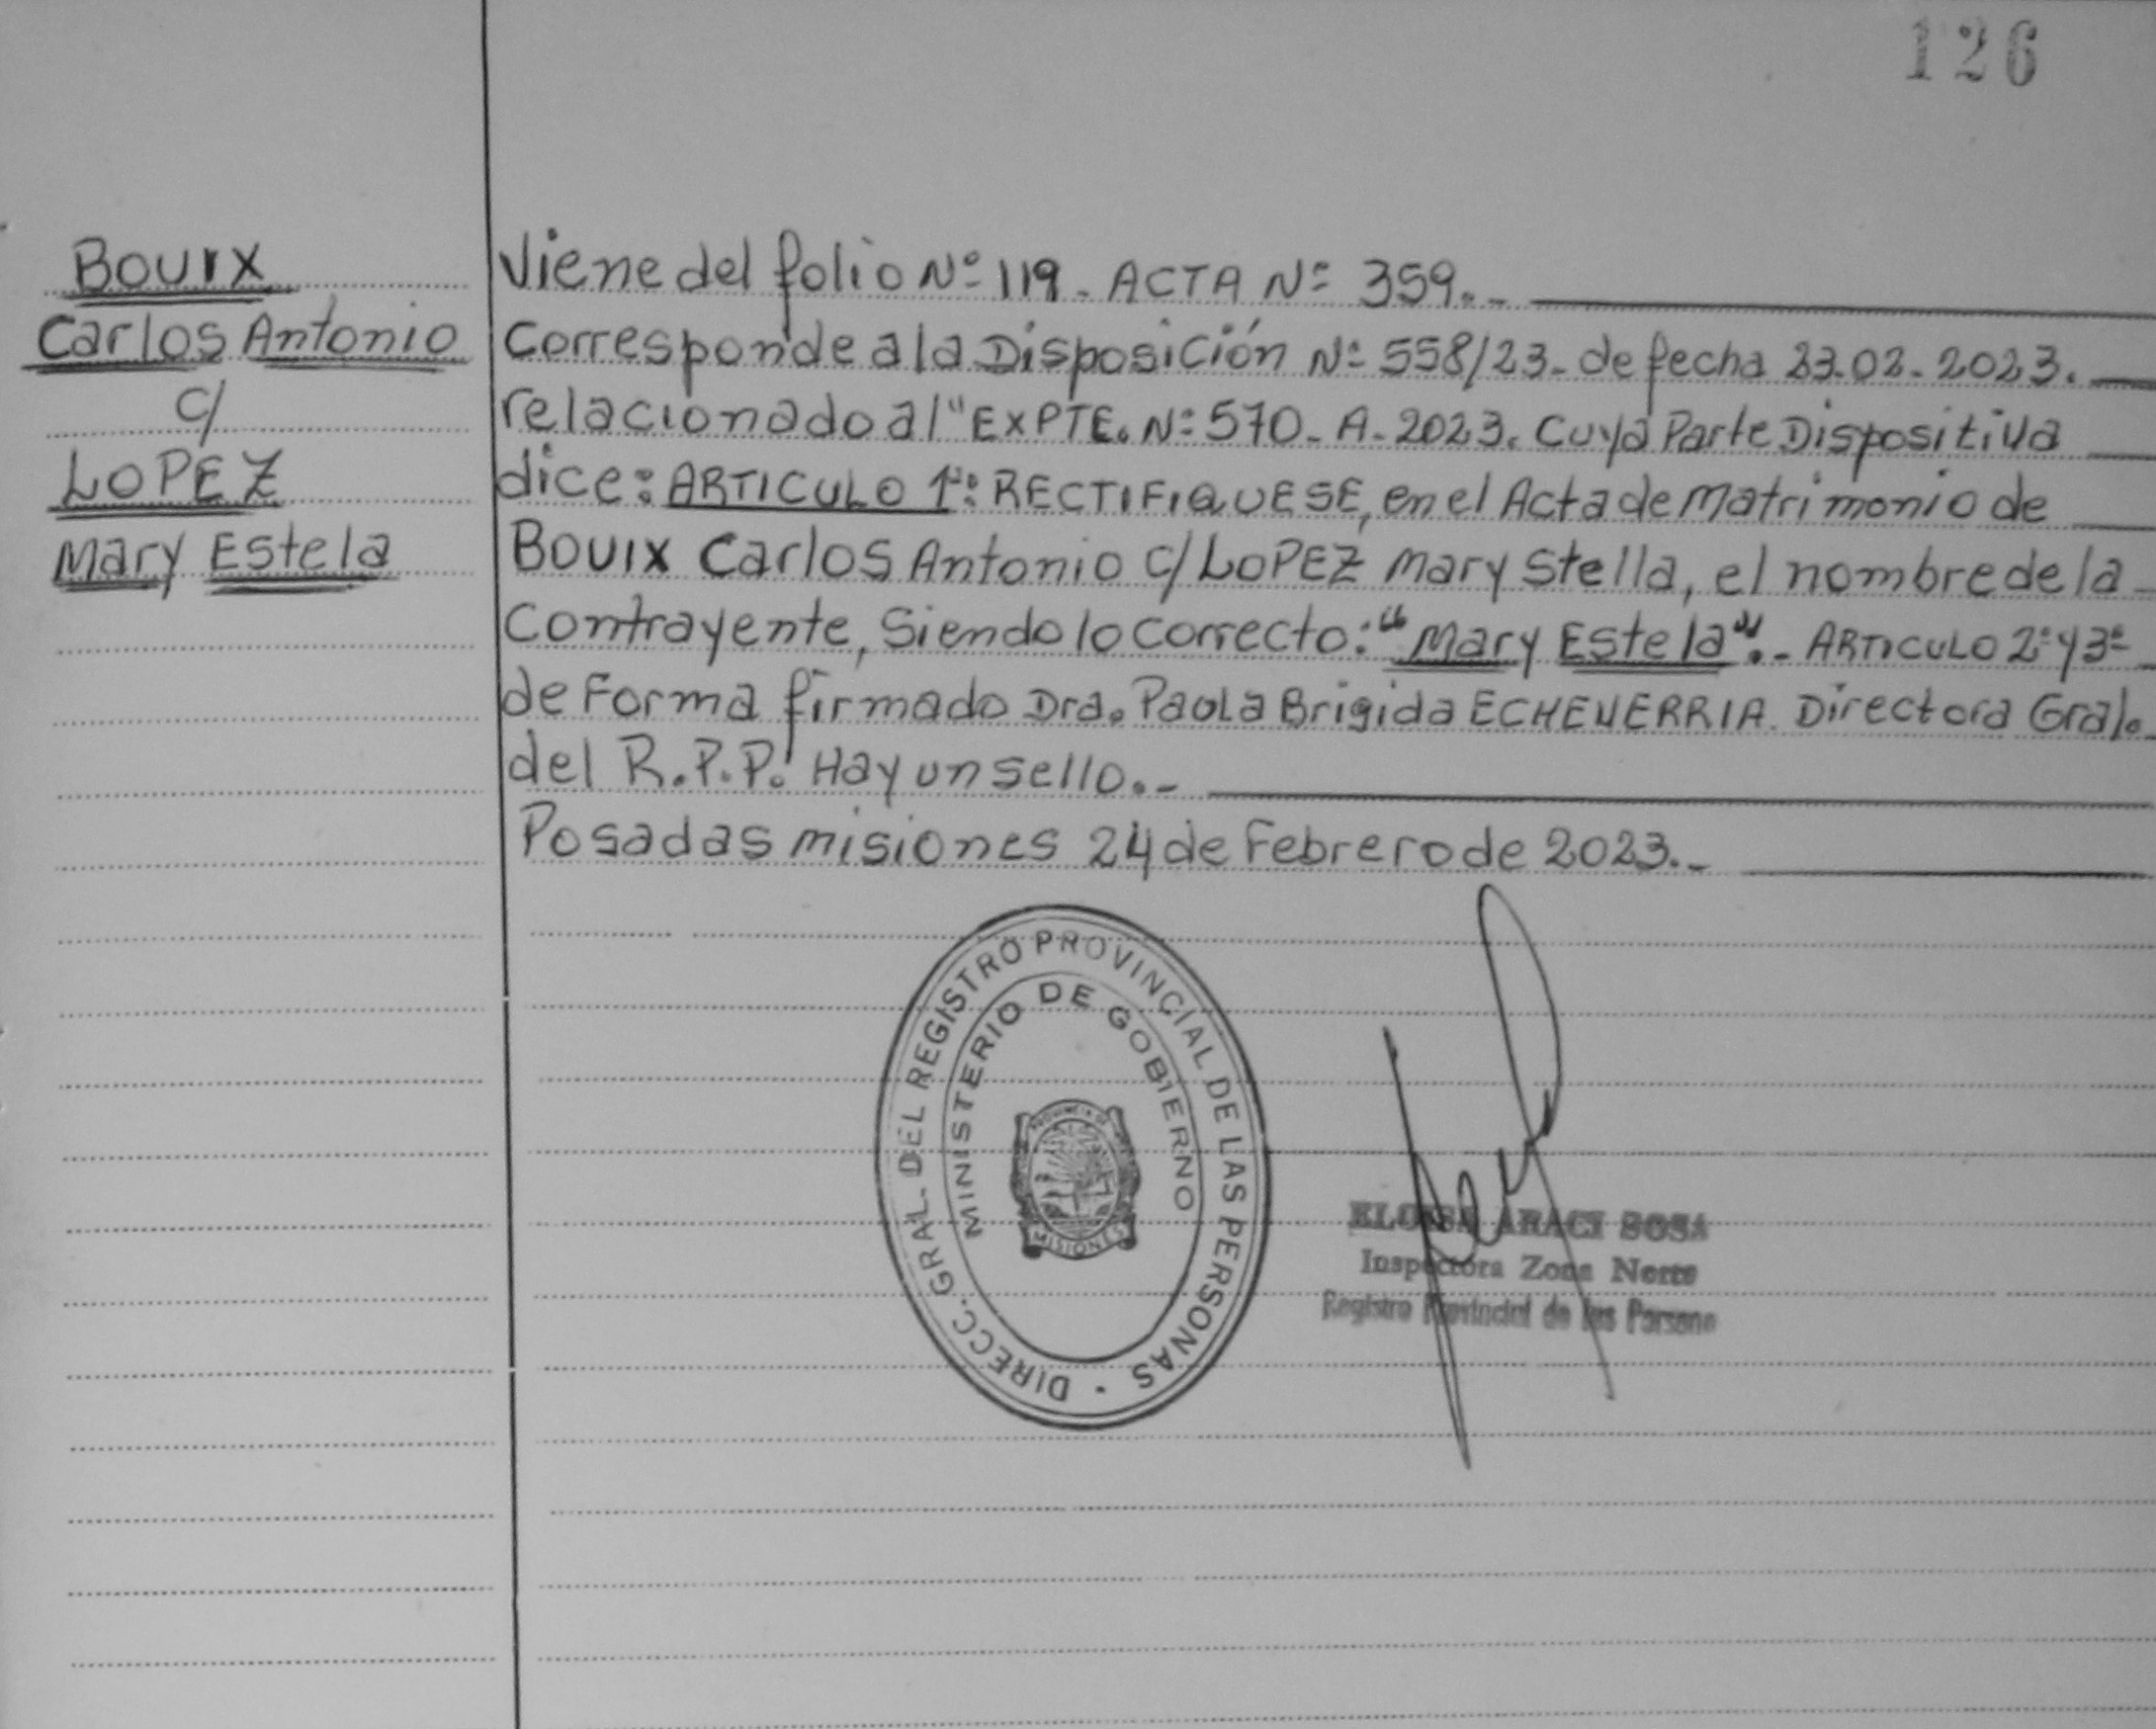 126
BOUIX
Carlos Antonio
c/
LOPEZ
Mary Estela
Viene del folio Nº 119. ACTA Nº 359._
Corresponde a la Disposición Nº 558/23. de fecha 23.02.2023.
relacionado al "EXPTE. Nº 570. A. 2023. Cuya Parte Dispositiva
dice: ARTICULO 1º: RECTIFIQUESE, en el Acta de Matrimonio de
BOUIX Carlos Antonio c/ LOPEZ Mary Stella, el nombre de la
Contrayente, Siendo lo correcto: "Mary Estela".- ARTICULO 2º y 3º
de Forma firmado Dra. Paola Brigida ECHEVERRIA. Directora Gral.
del R.P.P. Hay un sello.-
Posadas misiones 24 de Febrero de 2023.-
DIRECC. GRAL. DEL REGISTRO PROVINCIAL DE LAS PERSONAS
MINISTERIO DE GOBIERNO
PROVINCIA DE
MISIONES
ELOISA ARACI SOSA
Inspectora Zona Norte
Registro Provincial de las Persona